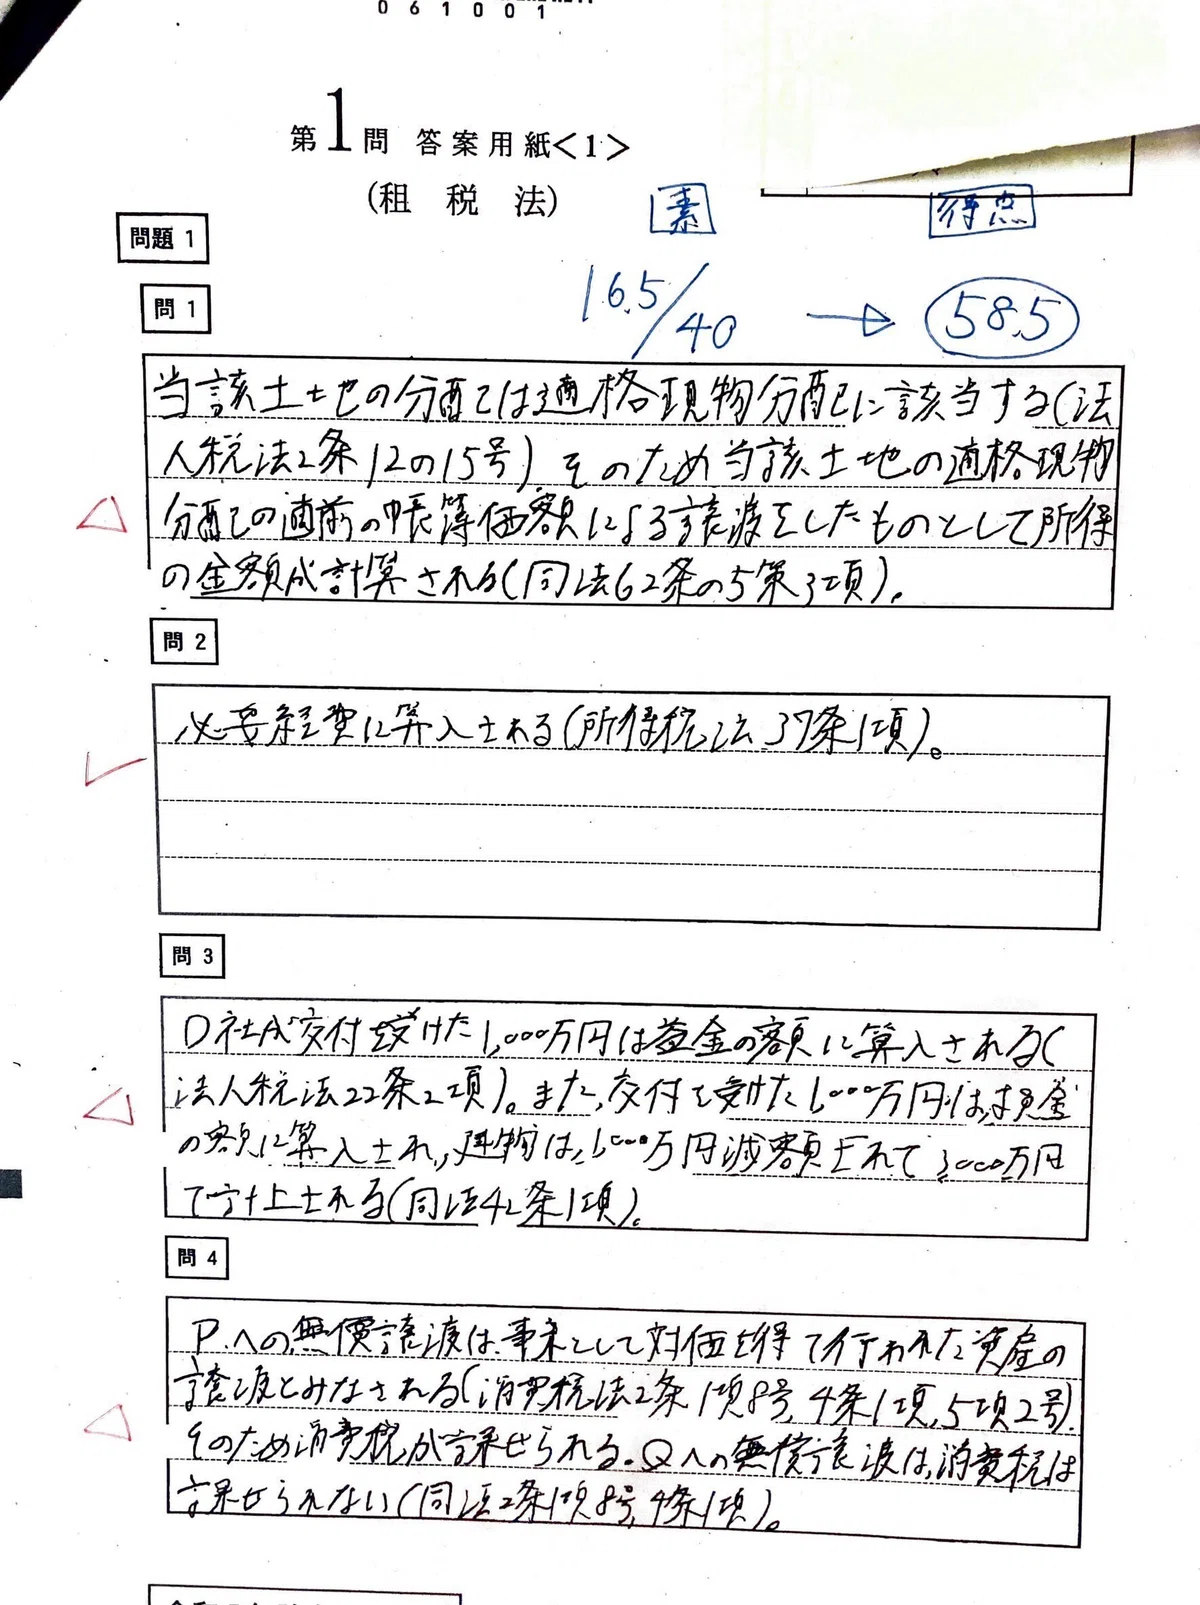 061001
第1問 答案用紙<1>
(租税法)
素
得点
問題 1
問 1
16.5/40 → 58.5
当該土地の分配は適格現物分配に該当する(法
人税法2条12の15号)。そのため当該土地の適格現物
分配の直前の帳簿価額による譲渡をしたものとして所得
の金額が計算される(同法62条の5第3項)。
問 2
必要経費に算入される(所得税法37条1項)。
問 3
D社が交付を受けた1,000万円は益金の額に算入される(
法人税法22条2項)。また、交付を受けた1,000万円は、損金
の額に算入され、建物は、1,000万円減額されて3,000万円
で計上される(同法42条1項)。
問 4
Pへの無償譲渡は、事業として対価を得て行われた資産の
譲渡とみなされる(消費税法2条1項8号、4条1項、5項2号)。
そのため消費税が課せられる。Qへの無償譲渡は、消費税は
課せられない(同法2条1項8号、4条1項)。